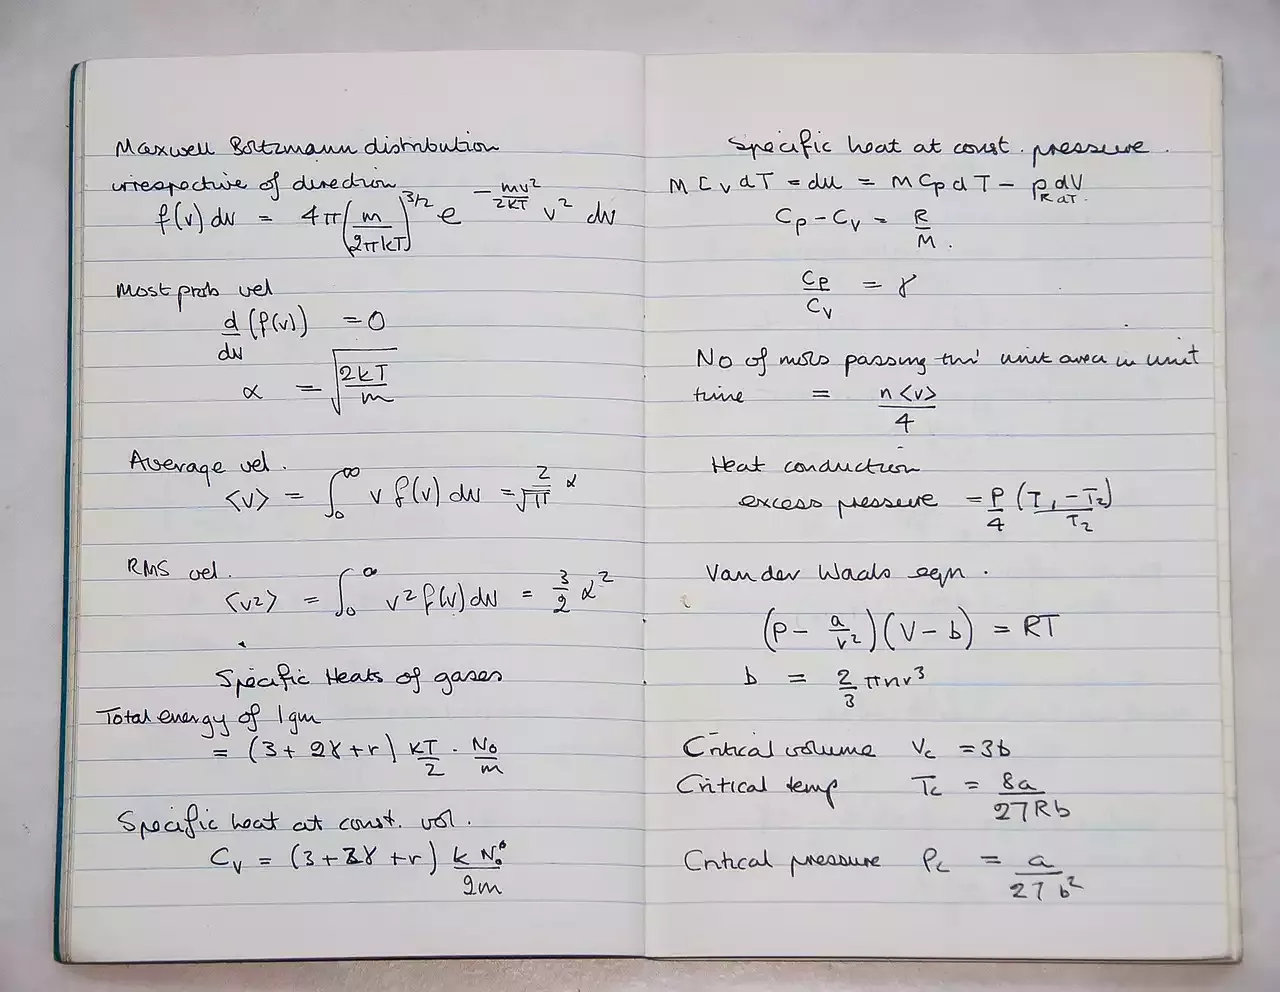 Maxwell Boltzmann distribution
irrespective of direction
f(v) dv = 4π (m/2πkT)^3/2 e^-mv²/2kT v² dv
Most prob vel
d/dv (f(v)) = 0
α = √(2kT/m)
Average vel.
<v> = ∫₀^∞ v f(v) dv = 2/√π α
RMS vel.
<v²> = ∫₀^∞ v² f(v) dv = 3/2 α²
Specific Heats of gases
Total energy of 1gm
= (3 + 2γ + r) kT/2 . N₀/m
Specific heat at const. vol.
Cv = (3 + 2γ + r) k N₀/2m
Specific heat at const. pressure.
M Cv dT = du = M Cp dT - p dV
R dT.
Cp - Cv = R/M.
Cp/Cv = γ
No of mols passing thro' unit area in unit
time = n<v>/4
Heat conduction
excess pressure = P/4 (T₁ - T₂)/T₂
Van der Waals eqn.
(P - a/v²)(V - b) = RT
b = 2/3 πnr³
Critical volume Vc = 3b
Critical temp Tc = 8a/27Rb
Critical pressure Pc = a/27b²